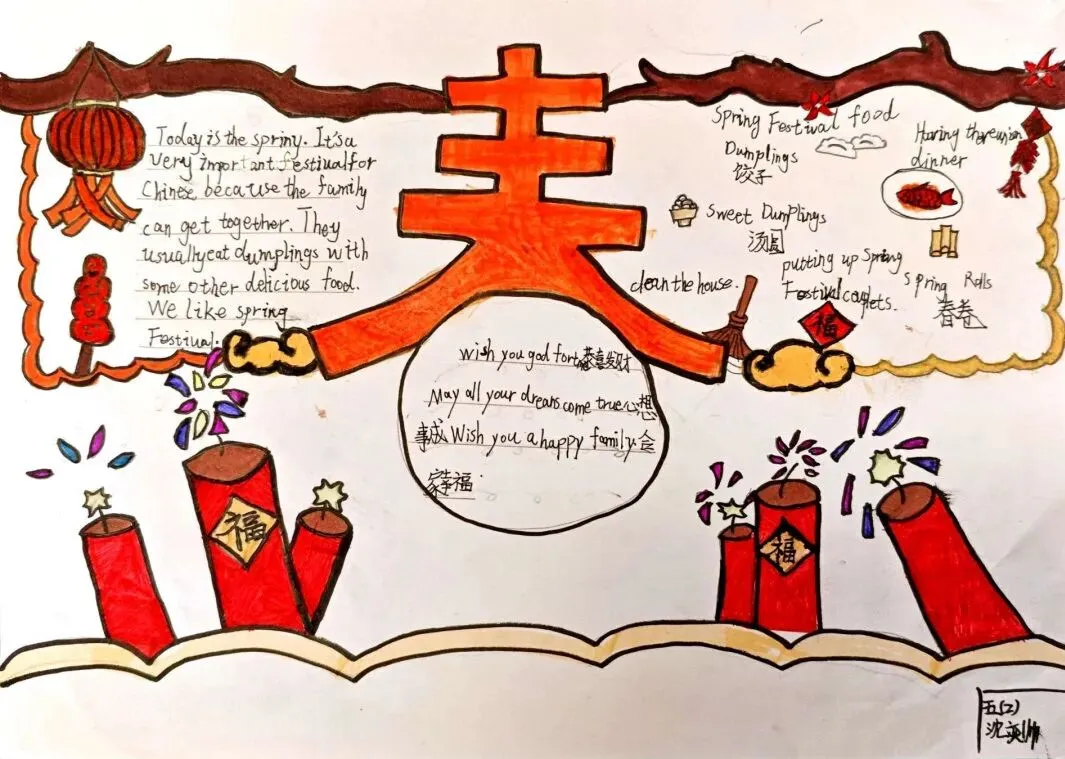 春
Today is the spriny. It's a
very important festiual for
Chinee because the family
can get together. They
usually eat dumplings with
some other delicious food.
We like spring
Festiual.
wish you god fort 恭喜发财
May all your dreams come true 心想
事成 Wish you a happy family 合
家幸福.
Spring Festival food
Dumplings
饺子
Sweet Dumplings
汤圆
clean the house.
putting up Spring
Festival couplets.
福
Having the reunion
dinner
Spring Rolls
春卷
福
福
五(2)
沈